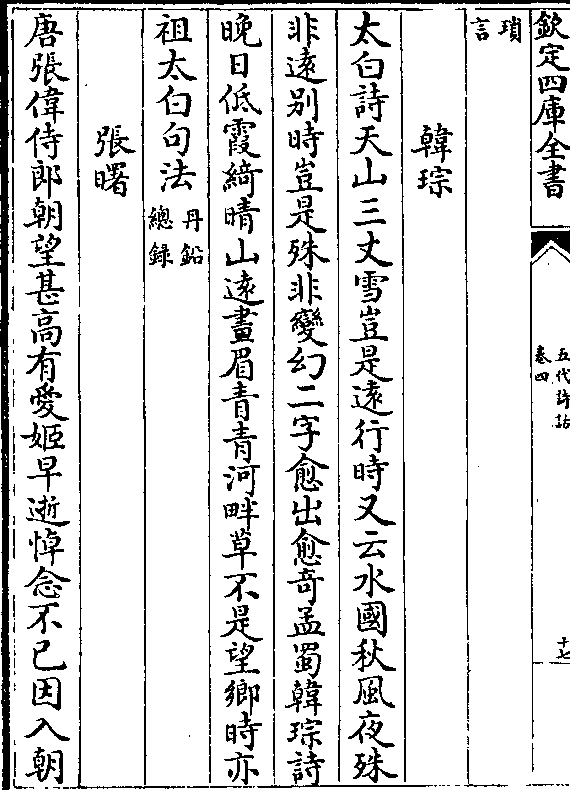 欽定四庫全書
五代詩話
卷四
十七
瑣
言
韓琮
太白詩天山三丈雪豈是遠行時又云水國秋風夜殊
非遠别時豈是殊非變幻二字愈出愈奇孟蜀韓琮詩
晚日低霞綺晴山遠畫眉青青河畔草不是望鄉時亦
祖太白句法丹鉛
總錄
張曙
唐張偉侍郎朝望甚高有愛姬早逝悼念不已因入朝